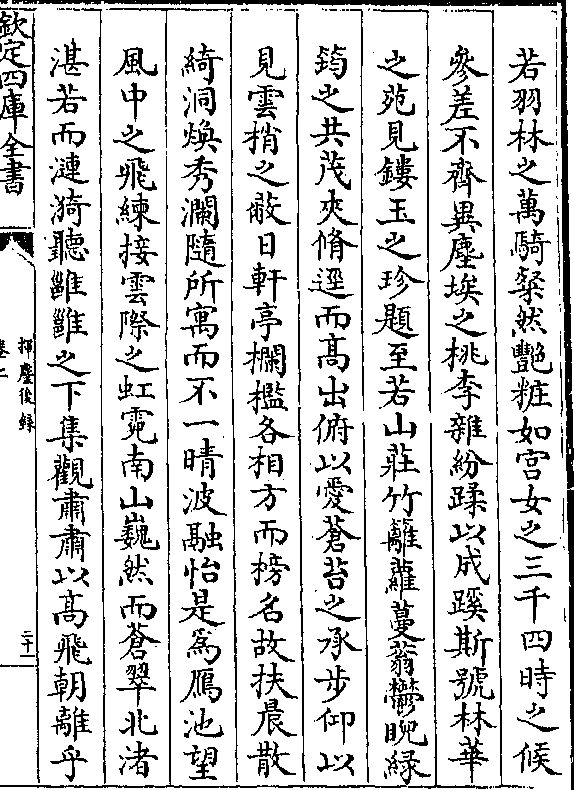 若羽林之萬騎粲然艷粧如宫女之三千四時之候
參差不齊異塵埃之桃李雜紛蹂以成蹊斯號林華
之苑見鏤玉之珍題至若山莊竹籬蘿蔓蓊鬱睨緑
筠之共茂夾脩逕而髙出俯以愛蒼苔之承步仰以
見雲梢之蔽日軒亭欄檻各相方而榜名故扶晨散
綺洞煥秀瀾隨所寓而不一晴波融怡是為鴈池望
風中之飛練接雲際之虹霓南山巍然而蒼翠北渚
湛若而漣漪聽雝雝之下集觀肅肅以髙飛朝離乎
欽定四庫全書
揮塵後録
卷二
二十一